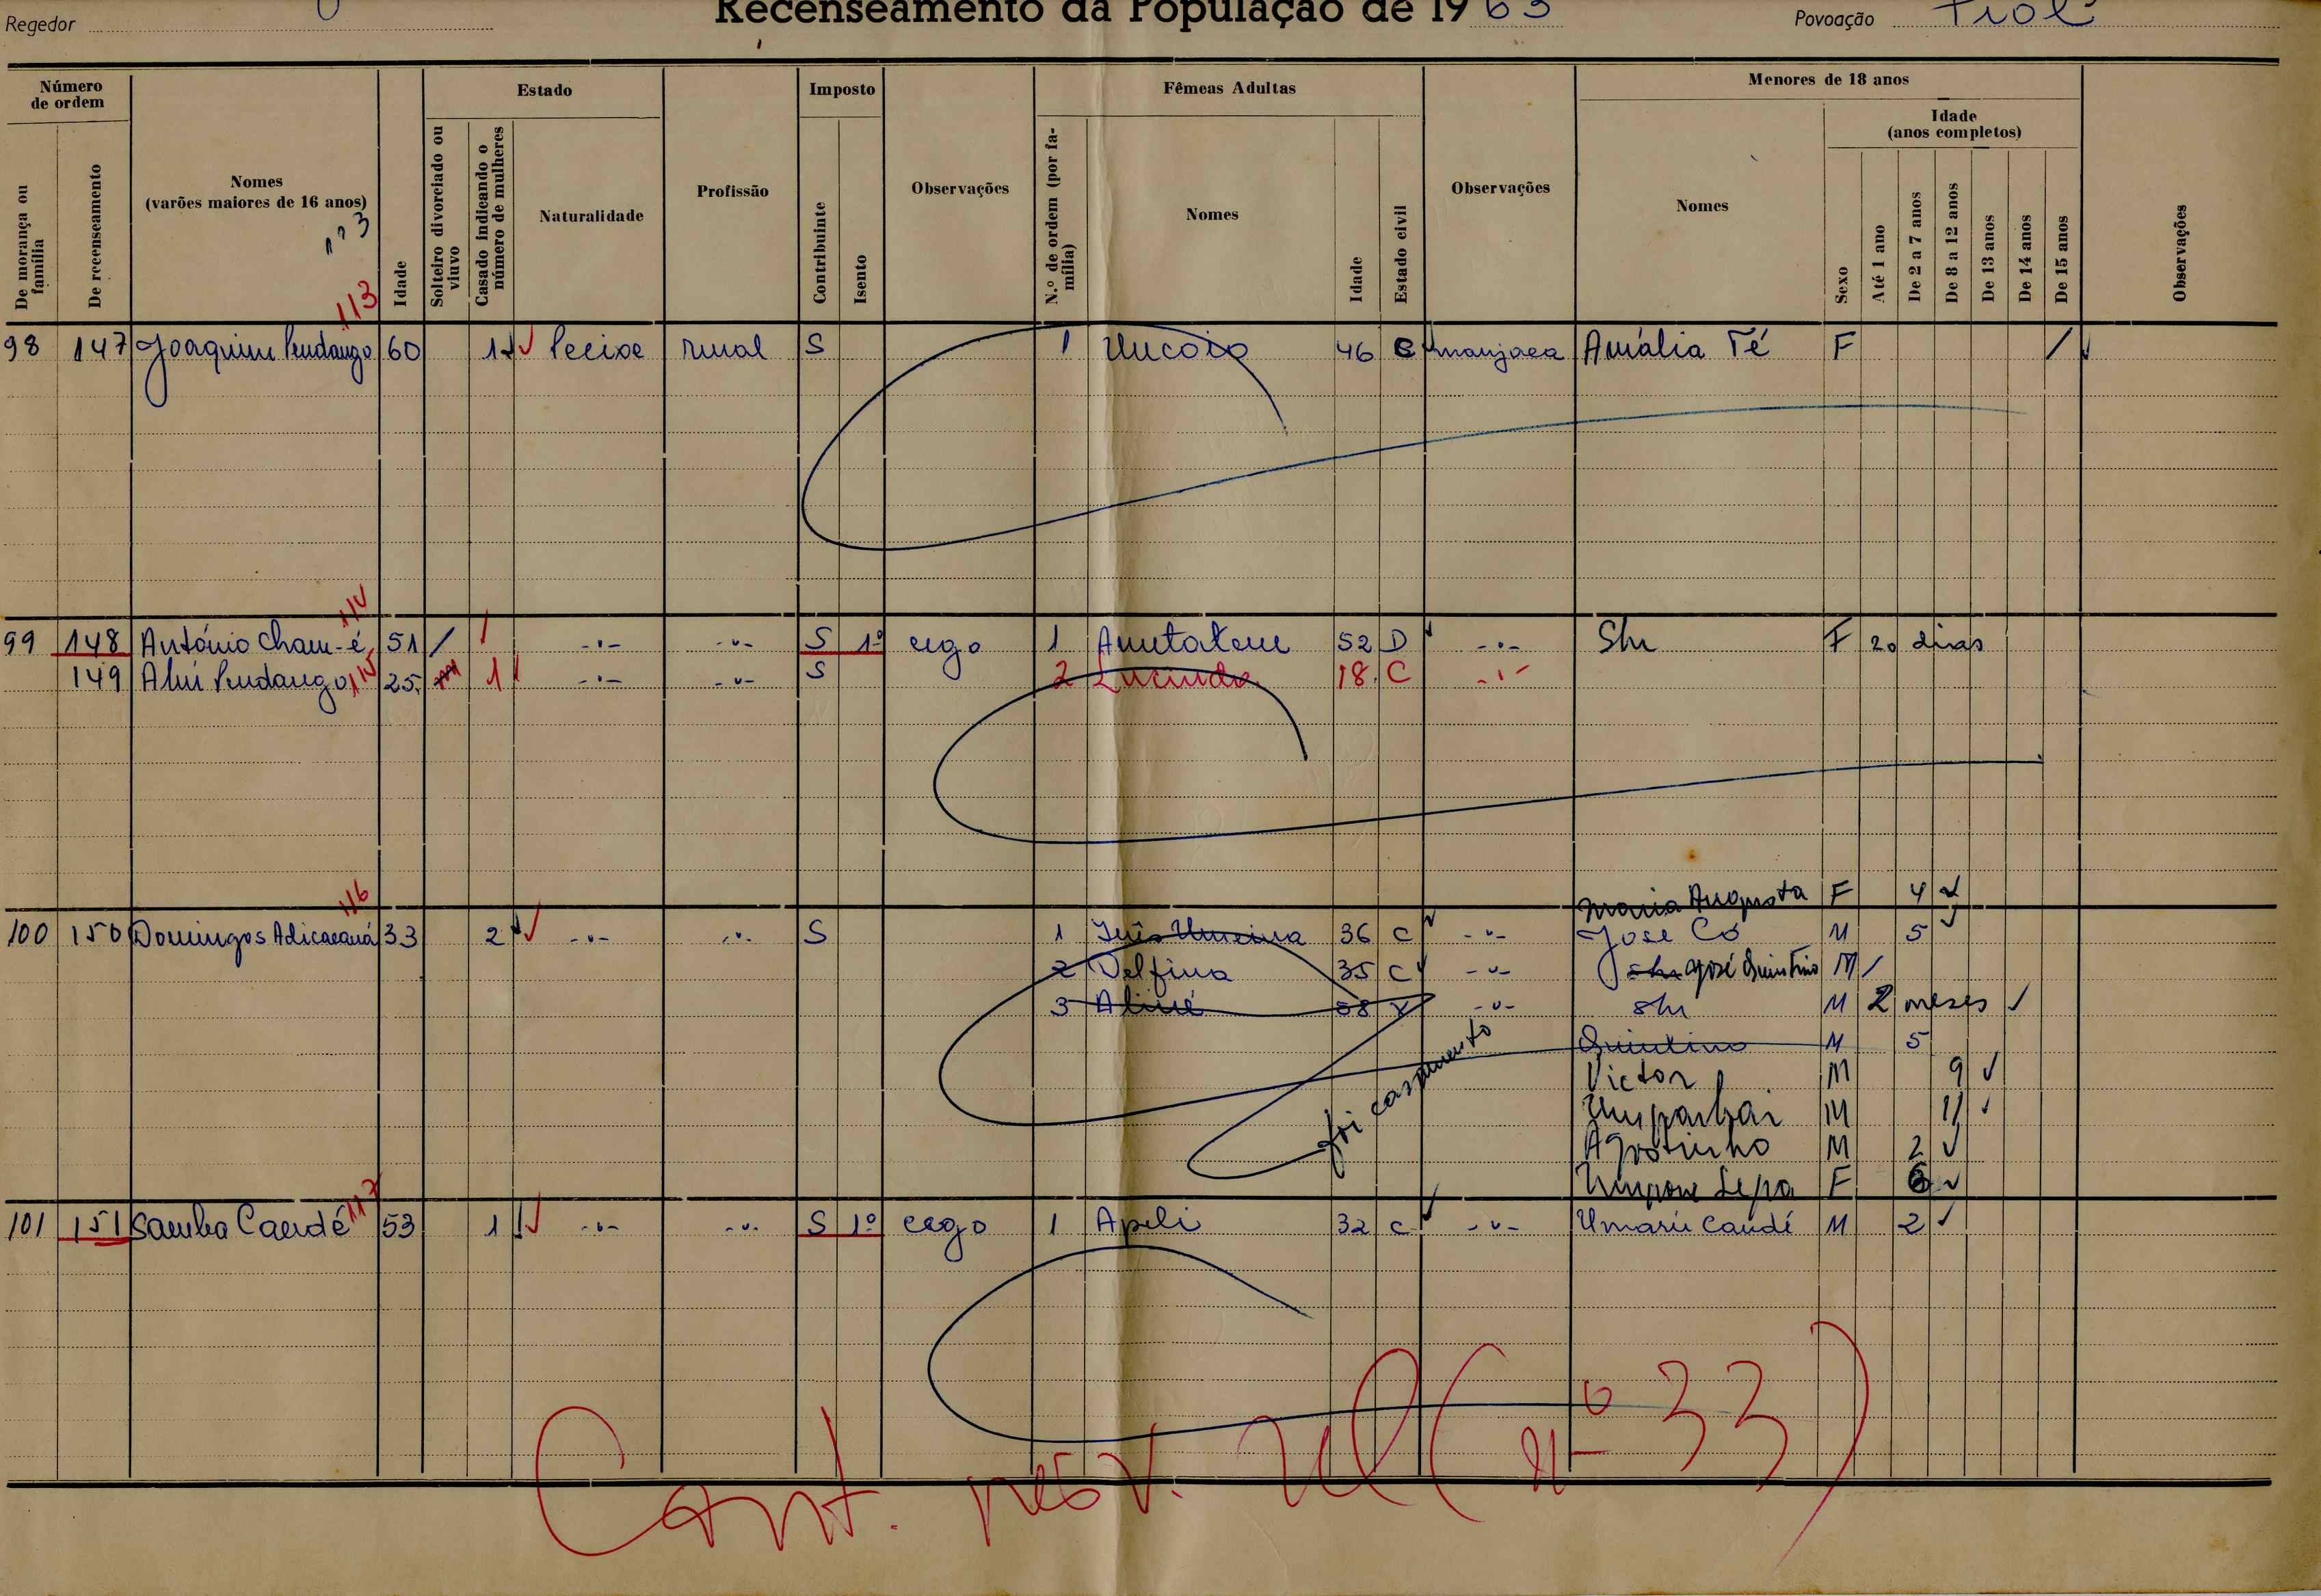 Regedor
Recenseamento da População de 1963
Povoação Tiol
Número de ordem
De morança ou família
De recenseamento
Nomes
(varões maiores de 16 anos)
113
113
Idade
Estado
Solteiro divorciado ou viuvo
Casado indicando o número de mulheres
Naturalidade
Profissão
Imposto
Contribuinte
Isento
Observações
Fêmeas Adultas
N.º de ordem (por família)
Nomes
Idade
Estado civil
Observações
Menores de 18 anos
Nomes
Sexo
Idade
(anos completos)
Até 1 ano
De 2 a 7 anos
De 8 a 12 anos
De 13 anos
De 14 anos
De 15 anos
Observações
98 147 Joaquim 60 1 Pecixe rural S 1 46 C manjaca Amália Té F /
114
99 148 António Cham-é 51 / -"- -"- S 1º cego 1 52 D -"- S/n F 20 dias
149 115 25 1 -"- -"- S 2 Lucinda 18 C -"-
Maria Augusta F 4
116
100 150 Domingos 33 2 -"- -"- S 1 Inês 36 C -"- José Có M 5
2 Delfina 35 C -"- s/n José Quintino M /
3 58 -"- s/n M 2 meses
foi casamento
Quintino M 5
Victor M 9
M 11
Agostinho M 2
F 6
117
101 151 Samba Candé 53 1 -"- -"- S 1º cego 1 Apili 32 C -"- Umarú Candé M 2
Cont. (nº 33)